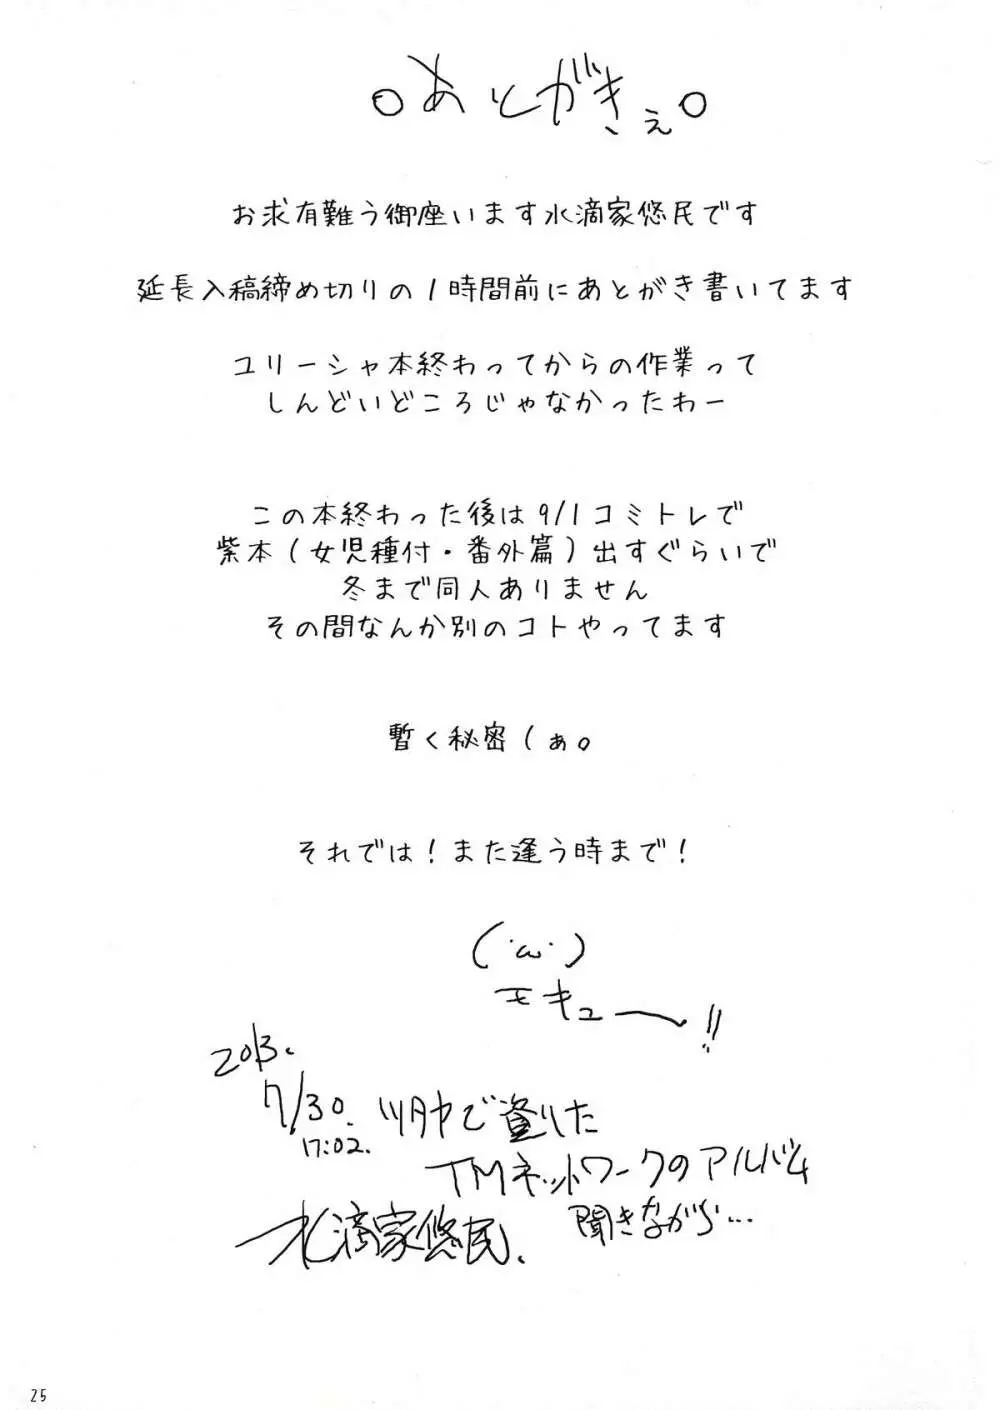 。あとがきぇ。
お求有難う御座います水滴家悠民です
延長入稿締め切りの1時間前にあとがき書いてます
ユリーシャ本終わってからの作業って
しんどいどころじゃなかったわー
この本終わった後は9/1コミトレで
紫本(女児種付・番外篇)出すぐらいで
冬まで同人ありません
その間なんか別のコトやってます
暫く秘密(ぁ。
それでは!また逢う時まで!
(・ω・)
モキューー!!
2013.
7/30.
17:02.
TMネットワークのアルバム
聞きながら...
水滴家悠民.
25